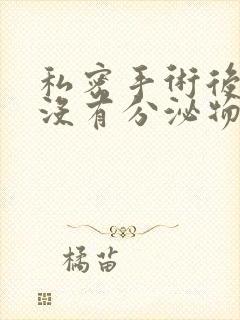 私密手術後
沒有分泌物
橘苗